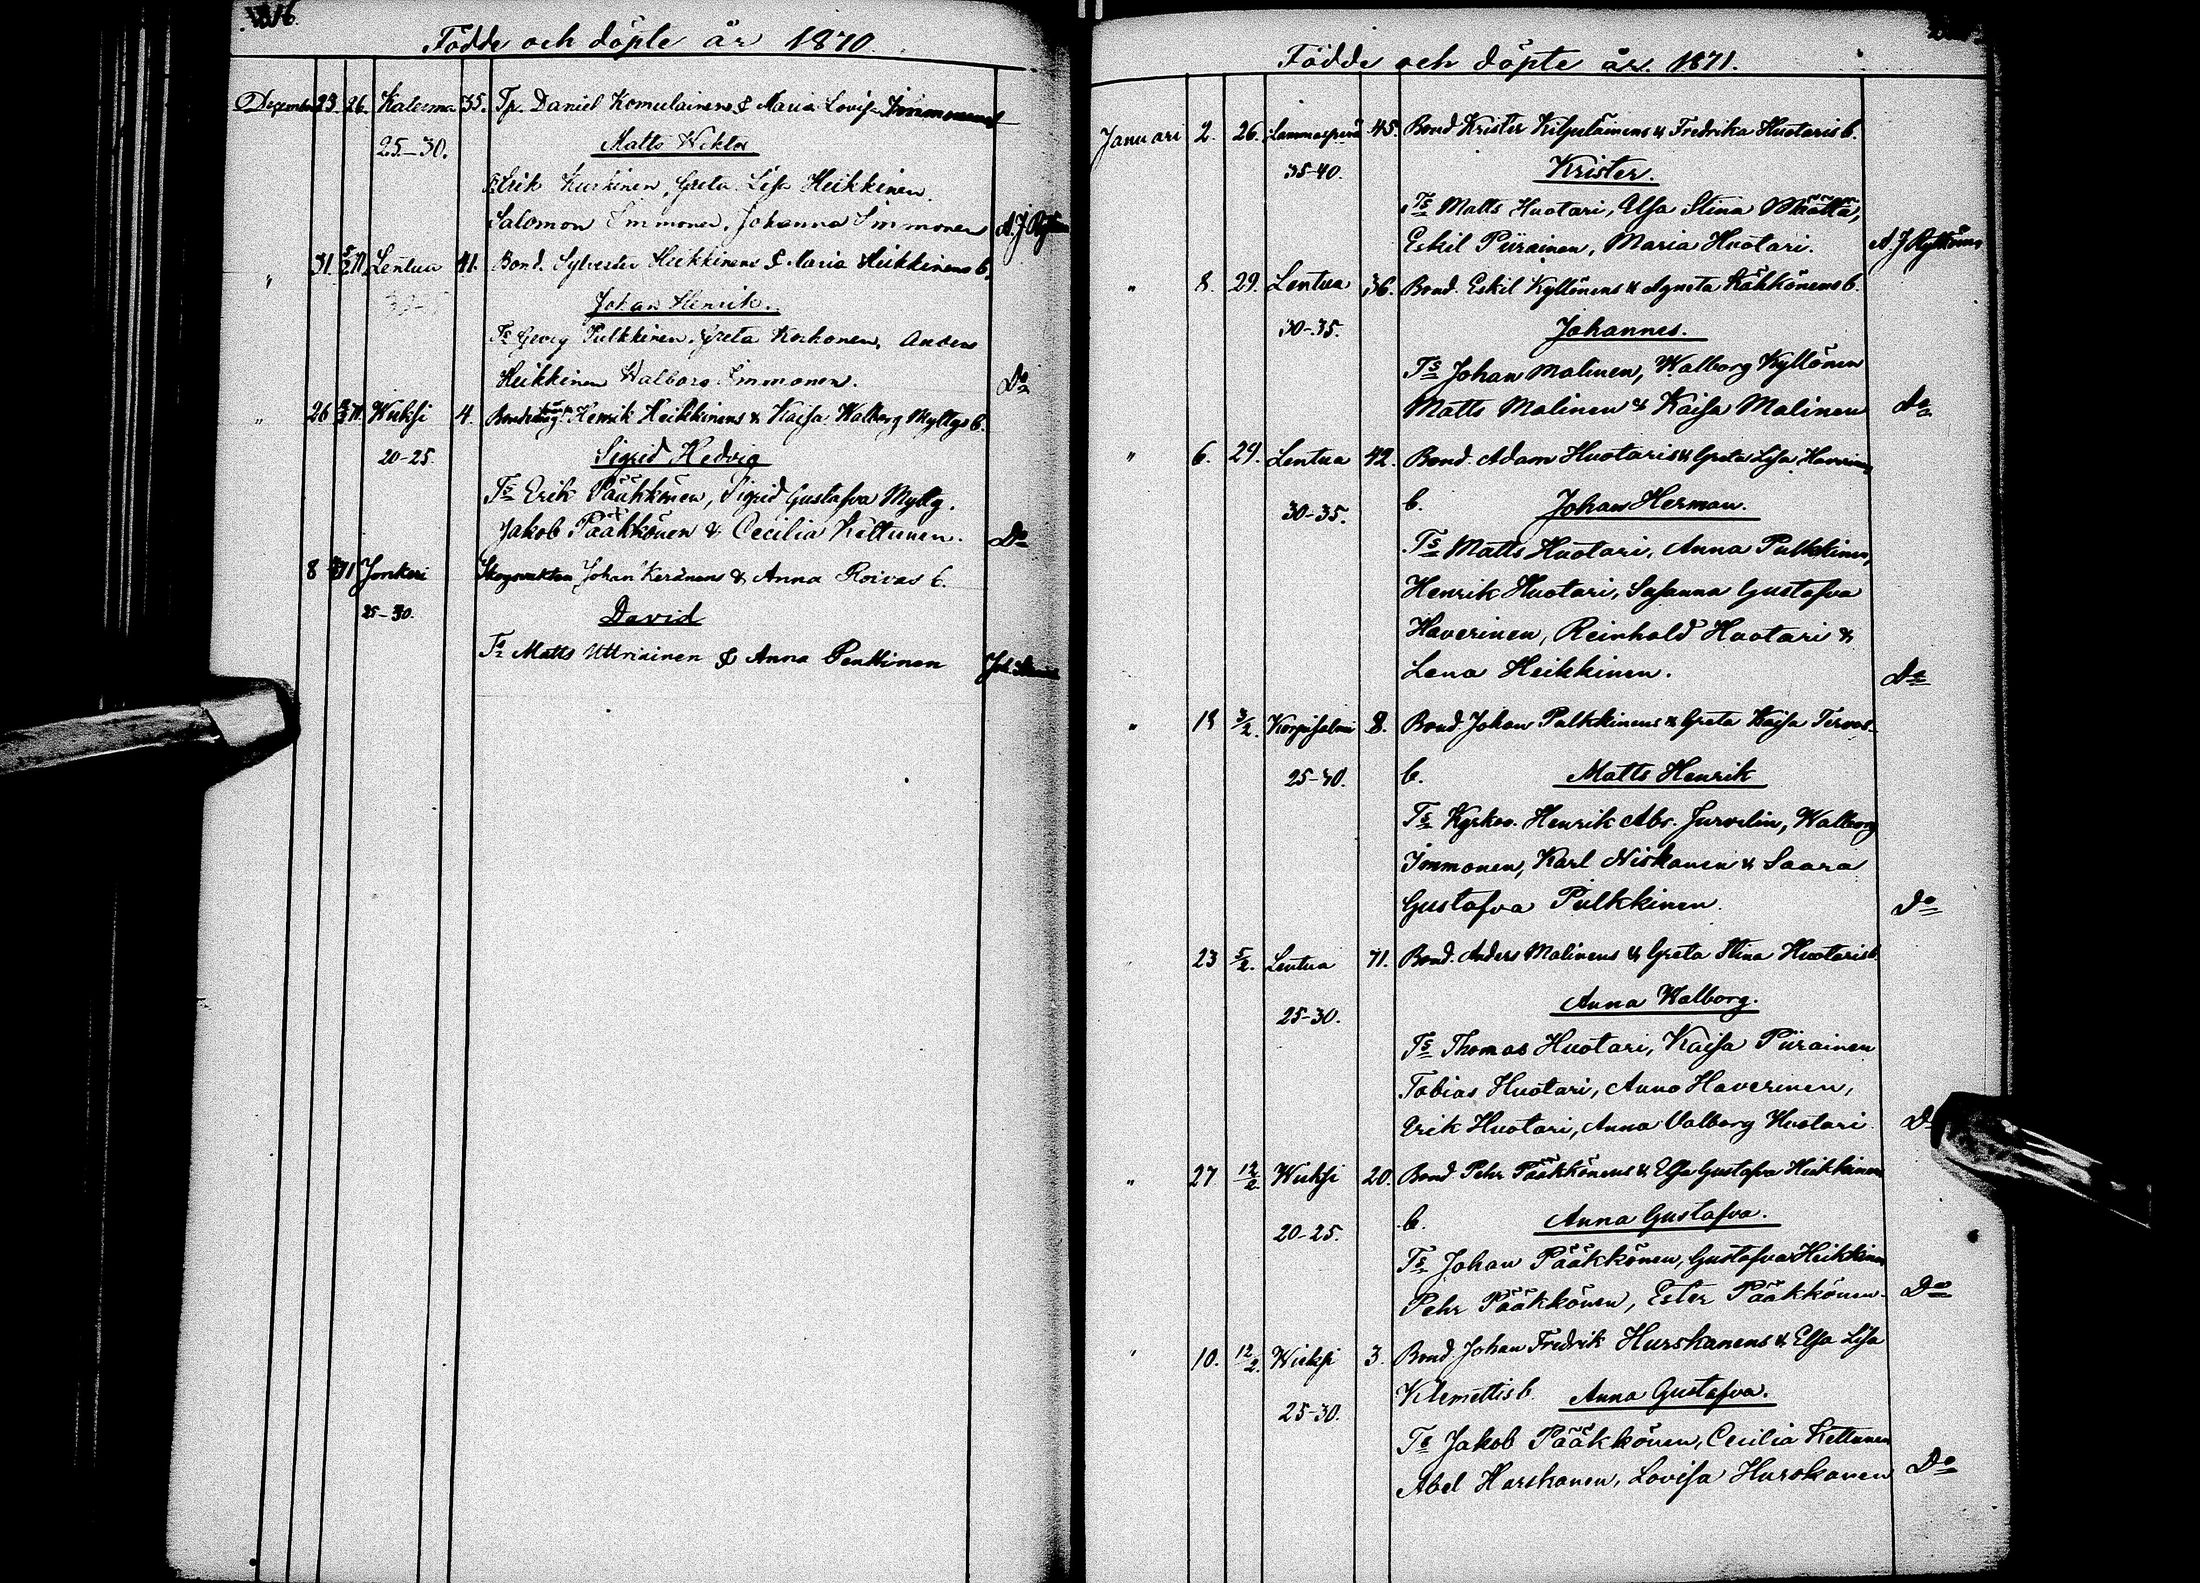 Födde och döpte år 1870.
December 23. 26. Kalerma 35. Tp. Daniel Komulainens & Maria Lovisa Immonens
25-30. Matts Wiktor
Erik Kurkinen, Greta Lisa Heikkinen.
Salomon Immonen, Johanna Immonen A. J.
" 31. 5/2 71. Lentua 41. Bond. Sylvester Heikkinens & Maria Heikkinens b.
Johan Henrik.
Ts Georg Pulkkinen, Greta Korhonen, Anders
Heikkinen Walborg Immonen. Do
" 26 71. Wieksi 4. Henrik Heikkinens & Kaisa Walborg Myllys b.
20-25. Sigrid Hedvig
Ts Erik Pääkkönen, Sigrid Gustafva Mylly.
Jakob Pääkkönen & Cecilia Kettunen. Do
8 71 Jonkeri Skogsvakten Johan Keränens & Anna Roivas b.
25-30. David
Ts Matts Uttriainen & Anna Penttinen Joh.
Födde och döpte år 1871.
Januari 2. 26. Lammasperä 45. Bond Krister Kilpeläinens & Fredrika Huotaris b.
35-40. Krister.
Ts Matts Huotari, Elsa Stina Määttä,
Eskil Piirainen, Maria Huotari. A J Rytkönen
" 8. 29. Lentua 36. Bond. Eskil Kyllönens & Agneta Kähkönens b.
30-35. Johannes.
Ts Johan Malinen, Walborg Kyllönen
Matts Malinen & Kaisa Malinen Do
" 6. 29. Lentua 42. Bond. Adam Huotaris & Greta Lisa Haverinens
30-35. b. Johan Herman.
Ts Matts Huotari, Anna Pulkkinen,
Henrik Huotari, Susanna Gustafva
Haverinen, Reinhold Huotari &
Lena Heikkinen. Do
" 18 3/2. Korpisalmi 8. Bond. Johan Pulkkinens & Greta Kaisa Tervos-
25-30. b. Matts Henrik
Ts Kyrkov. Henrik Abr. Jurvelin, Walborg
Immonen, Karl Niskanen & Saara
Gustafva Pulkkinen. Do
23 5/2. Lentua 71. Bond. Anders Malinens & Greta Stina Huotaris b.
25-30. Anna Walborg.
Ts Thomas Huotari, Kaisa Piirainen
Tobias Huotari, Anna Haverinen,
Erik Huotari, Anna Valborg Huotari Do
" 27 12/2. Wieksi 20. Bond Pehr Pääkkönens & Elsa Gustafva Heikkinens
20-25. b. Anna Gustafva.
Ts Johan Pääkkönen, Gustafva Heikkinen
Pehr Pääkkönen, Ester Pääkkönen. Do
" 10. 12/2. Wieksi 3. Bond Johan Fredrik Hurskanens & Elsa Lisa
25-30. Klemettis b. Anna Gustafva.
Ts Jakob Pääkkönen, Cecilia Kettunen
Abel Hurskanen, Lovisa Hurskanen Do